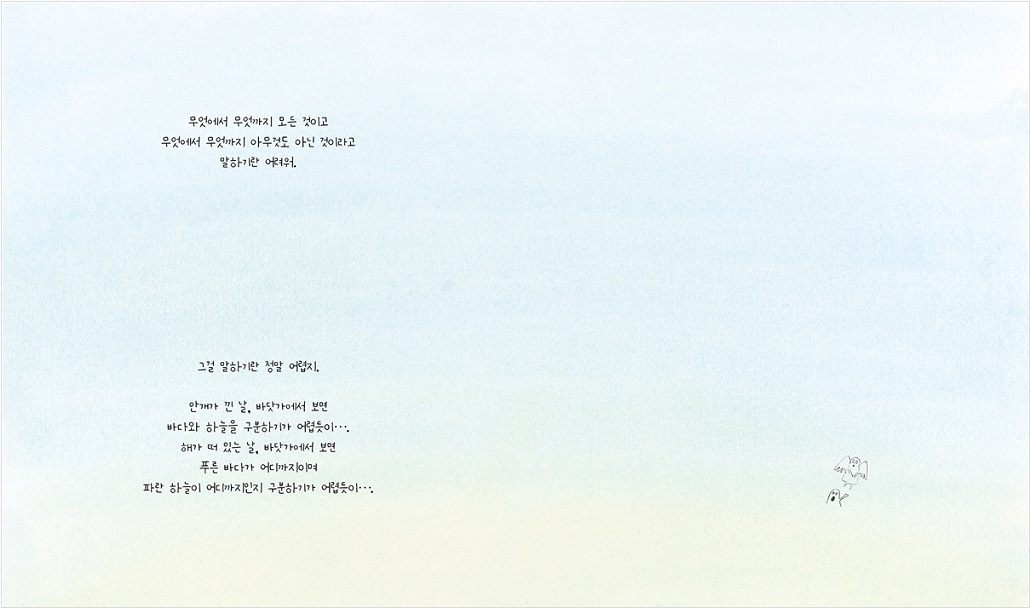 무엇에서 무엇까지 모든 것이고
무엇에서 무엇까지 아무것도 아닌 것이라고
말하기란 어려워.
그걸 말하기란 정말 어렵지.
안개가 낀 날, 바닷가에서 보면
바다와 하늘을 구분하기가 어렵듯이….
해가 떠 있는 날, 바닷가에서 보면
푸른 바다가 어디까지이며
파란 하늘이 어디까지인지 구분하기가 어렵듯이….